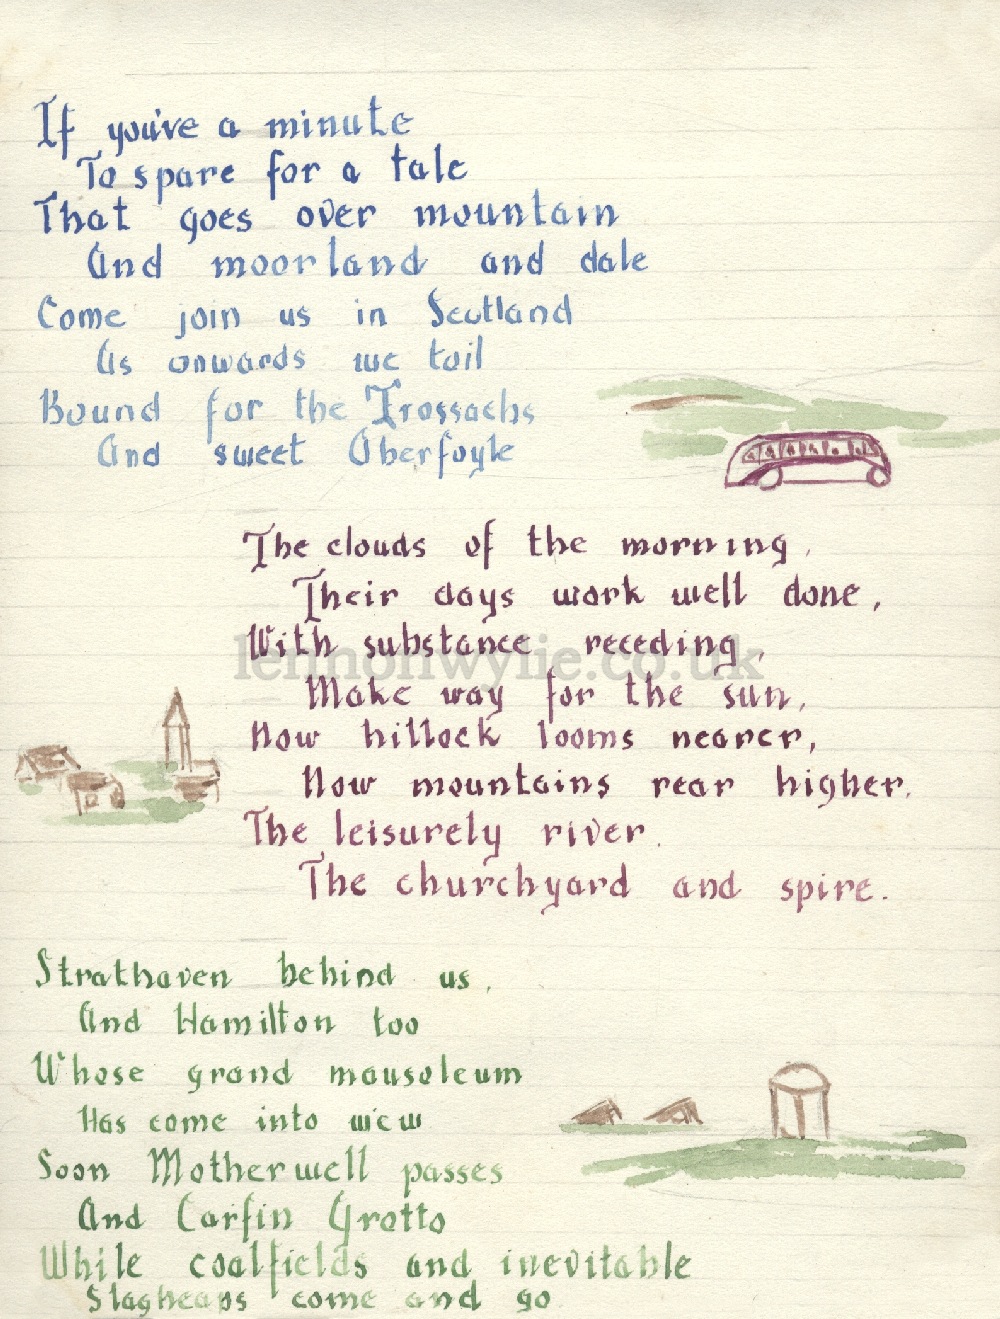 If you've a minute
To spare for a tale
That goes over mountain
And moorland and dale
Come join us in Scotland
As onwards we toil
Bound for the Trossachs
And sweet Aberfoyle
The clouds of the morning,
Their days work well done,
With substance receding,
lennonwylie.co.uk
Make way for the sun,
Now hillock looms nearer,
Now mountains rear higher.
The leisurely river.
The churchyard and spire.
Strathaven behind us,
And Hamilton too
Whose grand mausoleum
Has come into view
Soon Motherwell passes
And Carfin Grotto
While coalfields and inevitable
Slagheaps come and go